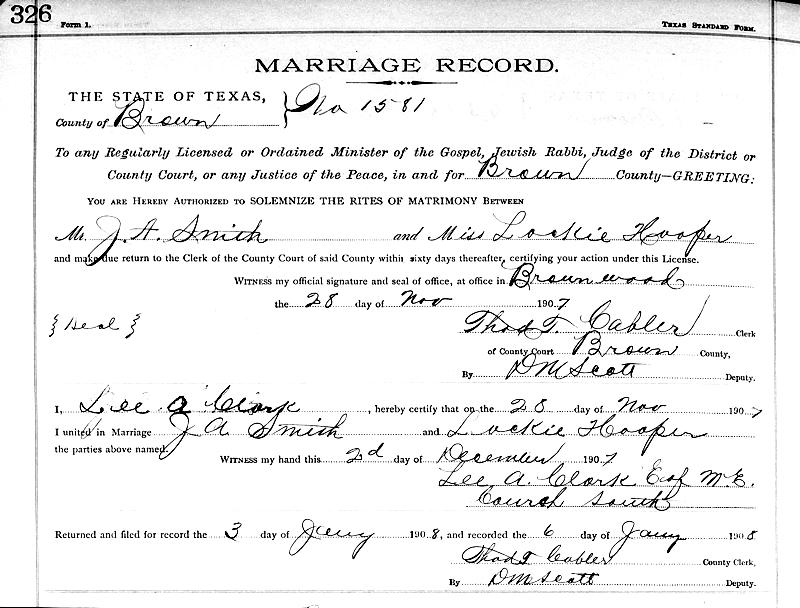 326
Form 1.
TEXAS STANDARD FORM.
MARRIAGE RECORD.
THE STATE OF TEXAS,
County of Brown } No 1581
To any Regularly Licensed or Ordained Minister of the Gospel, Jewish Rabbi, Judge of the District or
County Court, or any Justice of the Peace, in and for Brown County—GREETING:
YOU ARE HEREBY AUTHORIZED TO SOLEMNIZE THE RITES OF MATRIMONY BETWEEN
Mr. J. A. Smith and Miss Lockie Hooper
and make due return to the Clerk of the County Court of said County within sixty days thereafter, certifying your action under this License.
WITNESS my official signature and seal of office, at office in Brownwood
the 28 day of Nov 1907
{Seal} Thad T. Cabler Clerk
of County Court Brown County,
By D M Scott Deputy.
I, Lee A Clark, hereby certify that on the 28 day of Nov 1907
I united in Marriage J A Smith and Lockie Hooper
the parties above named.
WITNESS my hand this 2d day of December 1907
Lee A. Clark M. E.
Church South
Returned and filed for record the 3 day of Jany 1908, and recorded the 6 day of Jany 1908
Thad T Cabler County Clerk,
By D M Scott Deputy.